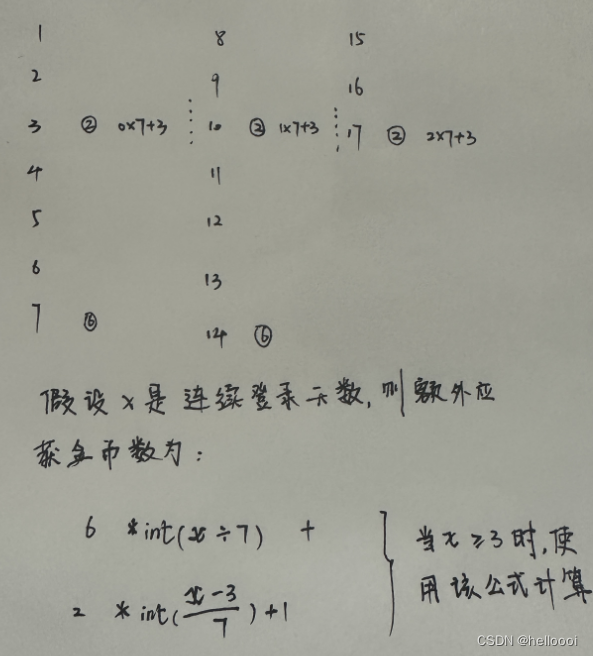 1 8 15
2 9 16
3 ② 0×7+3 10 ② 1×7+3 17 ② 2×7+3
4 11
5 12
6 13
7 ⑥ 14 ⑥
假设x是连续登录天数,则额外应
获金币数为:
6 *int(x÷7) +
2 *int(x-3/7)+1
当x≥3时,使
用该公式计算
CSDN @helloooi